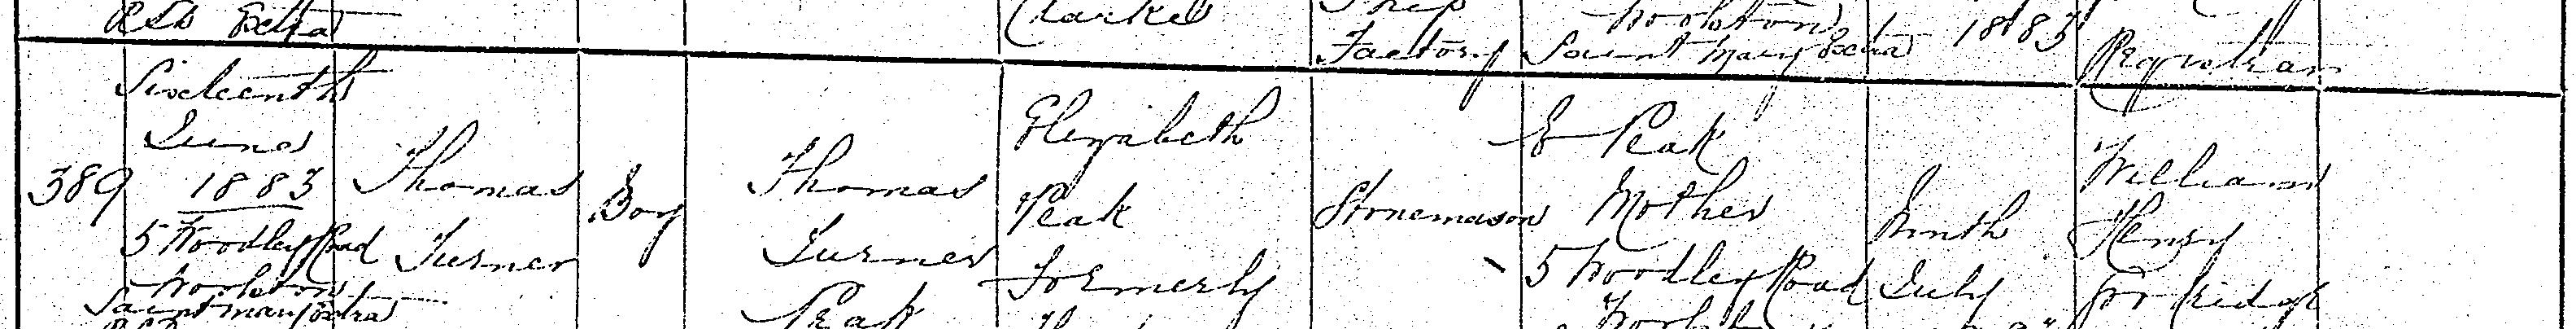 RSD Extra
Clarke
Ship
Factory
Woolston
Saint Mary Extra
1883
Registrar
389
Sixteenth
June
1883
5 Woodley Road
Woolston
Saint Mary Extra
RSD
Thomas
Turner
Boy
Thomas
Turner
Peak
Elizabeth
Peak
Formerly
Stonemason
E Peak
Mother
5 Woodley Road
Woolston
Ninth
July
William
Henry